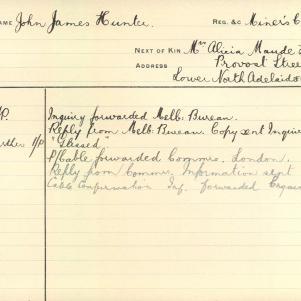 NAME John James Hunter REG. &C Miner's C
NEXT OF KIN Mrs Alicia Maude
ADDRESS Provost Stree
Lower North Adelaide
Inquiry forwarded Melb. Bureau.
Reply from Melb. Bureau. Copy sent Inquire
"Killed"
P/Cable forwarded Commrs. London.
Reply from Commr. Information sent
Cable Confirmation Inf. forwarded Enquir